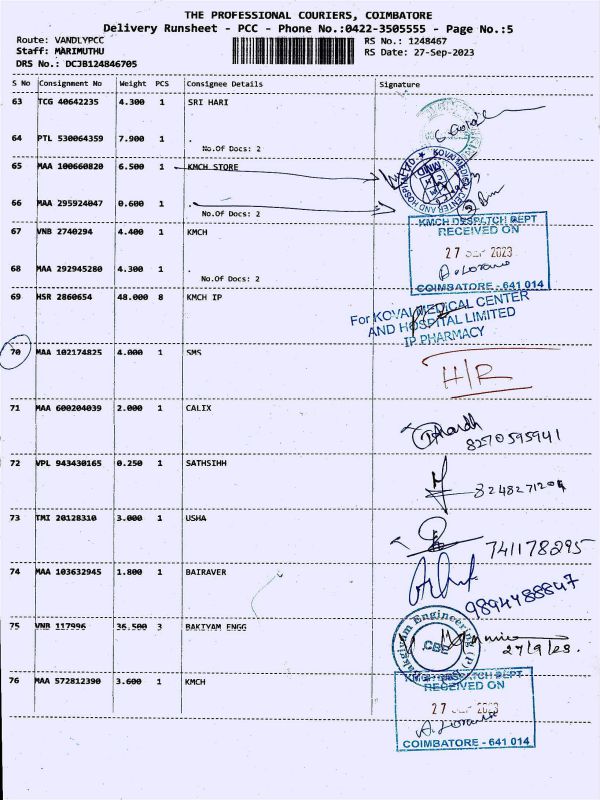 THE PROFESSIONAL COURIERS, COIMBATORE
Delivery Runsheet - PCC - Phone No.:0422-3505555 - Page No.:5
Route: VANDLYPCC RS No.: 1248467
Staff: MARIMUTHU RS Date: 27-Sep-2023
DRS No.: DCJB124846705
S No Consignment No Weight PCS Consignee Details Signature
63 TCG 40642235 4.300 1 SRI HARI
64 PTL 530064359 7.900 1 .
No.Of Docs: 2
65 MAA 100660820 6.500 1 KMCH STORE
66 MAA 295924047 0.600 1 .
No.Of Docs: 2
67 VNB 2740294 4.400 1 KMCH
KMCH DESPATCH DEPT
RECEIVED ON
27 SEP 2023
COIMBATORE - 641 014
68 MAA 292945280 4.300 1 .
No.Of Docs: 2
69 HSR 2860654 48.000 8 KMCH IP
For KOVAI MEDICAL CENTER
AND HOSPITAL LIMITED
IP PHARMACY
70 MAA 102174825 4.000 1 SMS
H/R
71 MAA 600204039 2.000 1 CALIX
8270595941
72 VPL 943430165 0.250 1 SATHSIHH
73 TMI 20128310 3.000 1 USHA
741178295
74 MAA 103632945 1.800 1 BAIRAVER
9894488847
75 VNB 117996 36.500 3 BAKIYAM ENGG
Bakiyam Engineering (P)
CBE
27/9/23.
76 MAA 572812390 3.600 1 KMCH
KMCH DESPATCH DEPT
RECEIVED ON
27 SEP 2023
COIMBATORE - 641 014